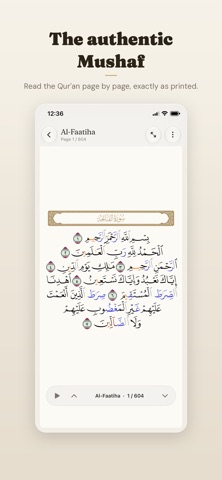 The authentic
Mushaf
Read the Qur'an page by page, exactly as printed.
12:36
Al-Faatiha
Page 1 / 604
سُورَةُ الفَاتِحَةِ
بِسْمِ ٱللَّهِ ٱلرَّحْمَٰنِ ٱلرَّحِيمِ ١
ٱلْحَمْدُ لِلَّهِ رَبِّ ٱلْعَٰلَمِينَ ٢
ٱلرَّحْمَٰنِ ٱلرَّحِيمِ ٣ مَٰلِكِ يَوْمِ ٱلدِّينِ ٤
إِيَّاكَ نَعْبُدُ وَإِيَّاكَ نَسْتَعِينُ ٥ ٱهْدِنَا
ٱلصِّرَٰطَ ٱلْمُسْتَقِيمَ ٦ صِرَٰطَ ٱلَّذِينَ أَنْعَمْتَ
عَلَيْهِمْ غَيْرِ ٱلْمَغْضُوبِ عَلَيْهِمْ
وَلَا ٱلضَّآلِّينَ ٧
Al-Faatiha · 1 / 604